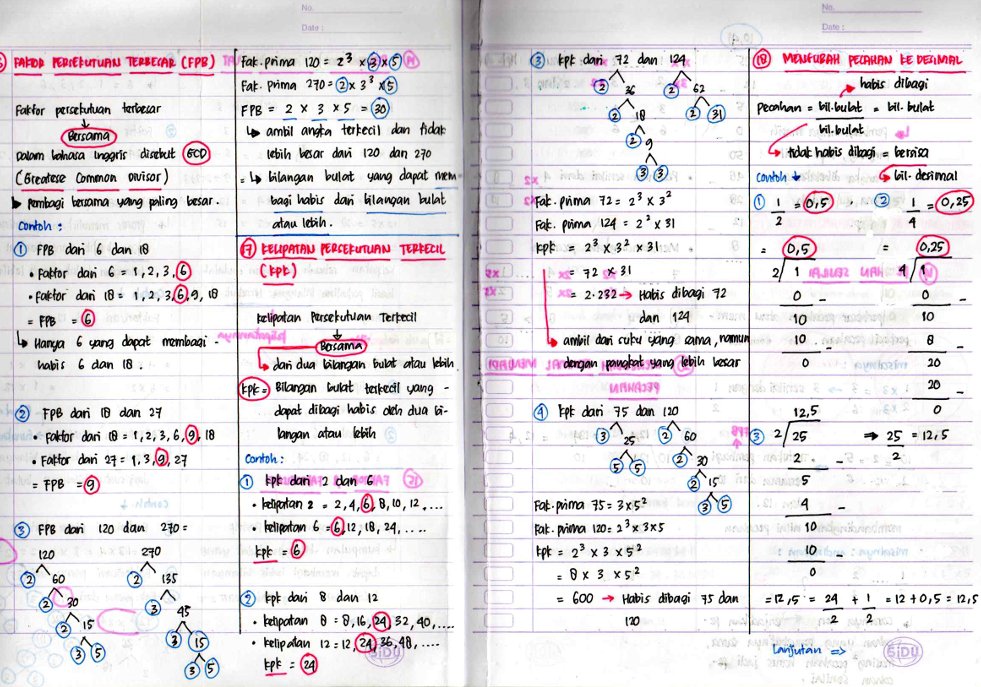 No.
Date :
FAKTOR PERSEKUTUAN TERBESAR (FPB)
Faktor persekutuan terbesar
Bersama
Dalam bahasa Inggris disebut GCD
(Greatese Common Divisor)
↳ pembagi bersama yang paling besar.
Contoh :
① FPB dari 6 dan 18
• Faktor dari 6 = 1, 2, 3, 6
• Faktor dari 18 = 1, 2, 3, 6, 9, 18
= FPB = 6
↳ Hanya 6 yang dapat membagi -
habis 6 dan 18.
② FPB dari 18 dan 27
• Faktor dari 18 = 1, 2, 3, 6, 9, 18
• Faktor dari 27 = 1, 3, 9, 27
= FPB = 9
③ FPB dari 120 dan 270 =
120 270
2 60 2 135
2 30 3 45
2 15 3 15
3 5 3 5
Fak. prima 120 = 2³ x 3 x 5
Fak. prima 270 = 2 x 3³ x 5
FPB = 2 x 3 x 5 = 30
↳ ambil angka terkecil dan tidak
lebih besar dari 120 dan 270
= ↳ bilangan bulat yang dapat mem
bagi habis dari bilangan bulat
atau lebih.
⑰ KELIPATAN PERSEKUTUAN TERKECIL
(KPK)
Kelipatan Persekutuan Terkecil
Bersama
dari dua bilangan bulat atau lebih
KPK = Bilangan bulat terkecil yang -
dapat dibagi habis oleh dua bi-
langan atau lebih
Contoh :
① KPK dari 2 dan 6
• Kelipatan 2 = 2, 4, 6, 8, 10, 12, ....
• Kelipatan 6 = 6, 12, 18, 24, ....
KPK = 6
② KPK dari 8 dan 12
• Kelipatan 8 = 8, 16, 24, 32, 40, ....
• Kelipatan 12 = 12, 24, 36, 48, ....
KPK = 24
SIDU
③ KPK dari 72 dan 124
2 36 2 62
2 18 2 31
2 9
3 3
Fak. prima 72 = 2³ x 3²
Fak. prima 124 = 2² x 31
KPK = 2³ x 3² x 31
= 72 x 31
= 2.232 → Habis dibagi 72
dan 124
ambil dari suku yang sama, namun
dengan pangkat yang lebih besar
④ KPK dari 75 dan 120
3 25 2 60
5 5 2 30
2 15
3 5
Fak. prima 75 = 3 x 5²
Fak. prima 120 = 2³ x 3 x 5
KPK = 2³ x 3 x 5²
= 8 x 3 x 5²
= 600 → Habis dibagi 75 dan
120
No.
Date :
⑱ MENGUBAH PECAHAN KE DESIMAL
habis dibagi
Pecahan = bil. bulat = bil. bulat
bil. bulat
tidak habis dibagi = bersisa
Contoh ↓ bil. desimal
① 1 = 0,5 ② 1 = 0,25
2 4
= 0,5 = 0,25
2 1 4 1
0 - 0 -
10 10
10 - 8 -
0 20
20 -
0
12,5
③ 2 25 ⇒ 25 = 12,5
2
2 -
5
4 -
10
10 -
0
= 12,5 = 24 + 1 = 12 + 0,5 = 12,5
2 2
Lanjutan ⇒
SIDU